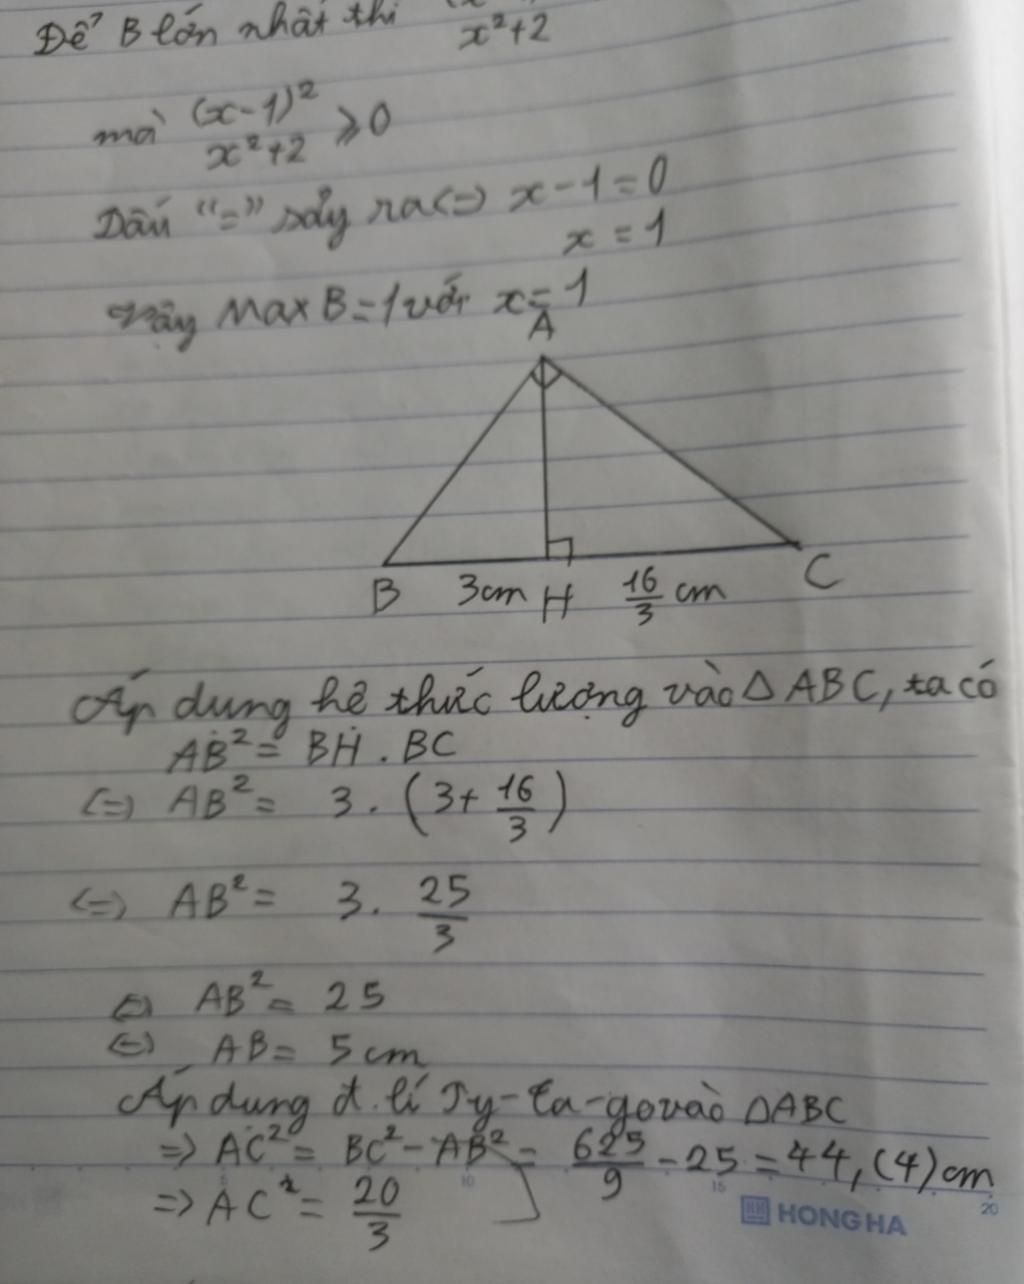 Để B lớn nhất thì x²+2
mà (x-1)²/x²+2 ⩾0
Dấu "=" xảy ra(=) x-1=0
x=1
Vậy Max B=1 với x=1
A
B 3cm H 16/3 cm C
Áp dụng hệ thức lượng vào △ABC, ta có
AB²= BH.BC
(=) AB²= 3.(3+16/3)
(=) AB²= 3.25/3
(=) AB²= 25
(=) AB= 5cm
Áp dụng đ.lí Py-ta-go vào △ABC
=> AC²= BC²-AB²= 625/9-25=44,(4)cm
=> AC²= 20/3
5 10 15 20
HH HONG HA